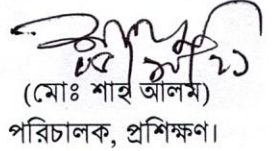 (মোঃ শাহ আলম)
পরিচালক, প্রশিক্ষণ।